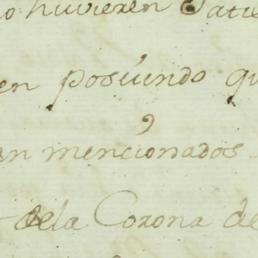 o huvieren Satis
en posiendo qu
an mencionados
dela Corona de